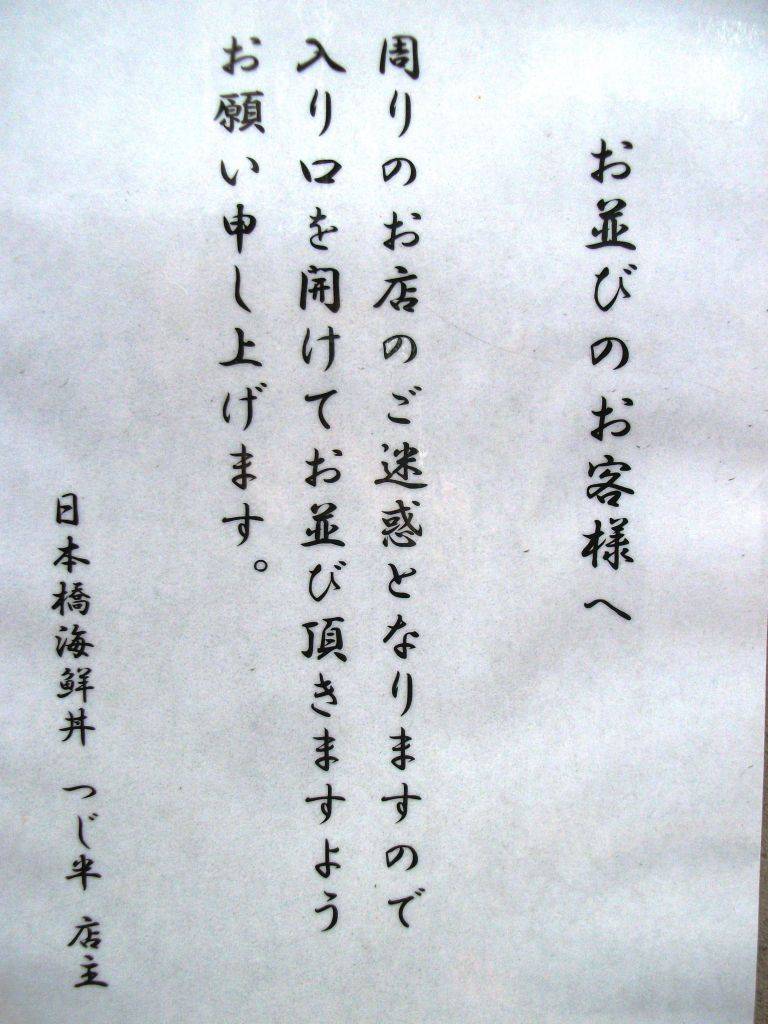 お並びのお客様へ
周りのお店のご迷惑となりますので
入り口を開けてお並び頂きますよう
お願い申し上げます。
日本橋海鮮丼 つじ半 店主